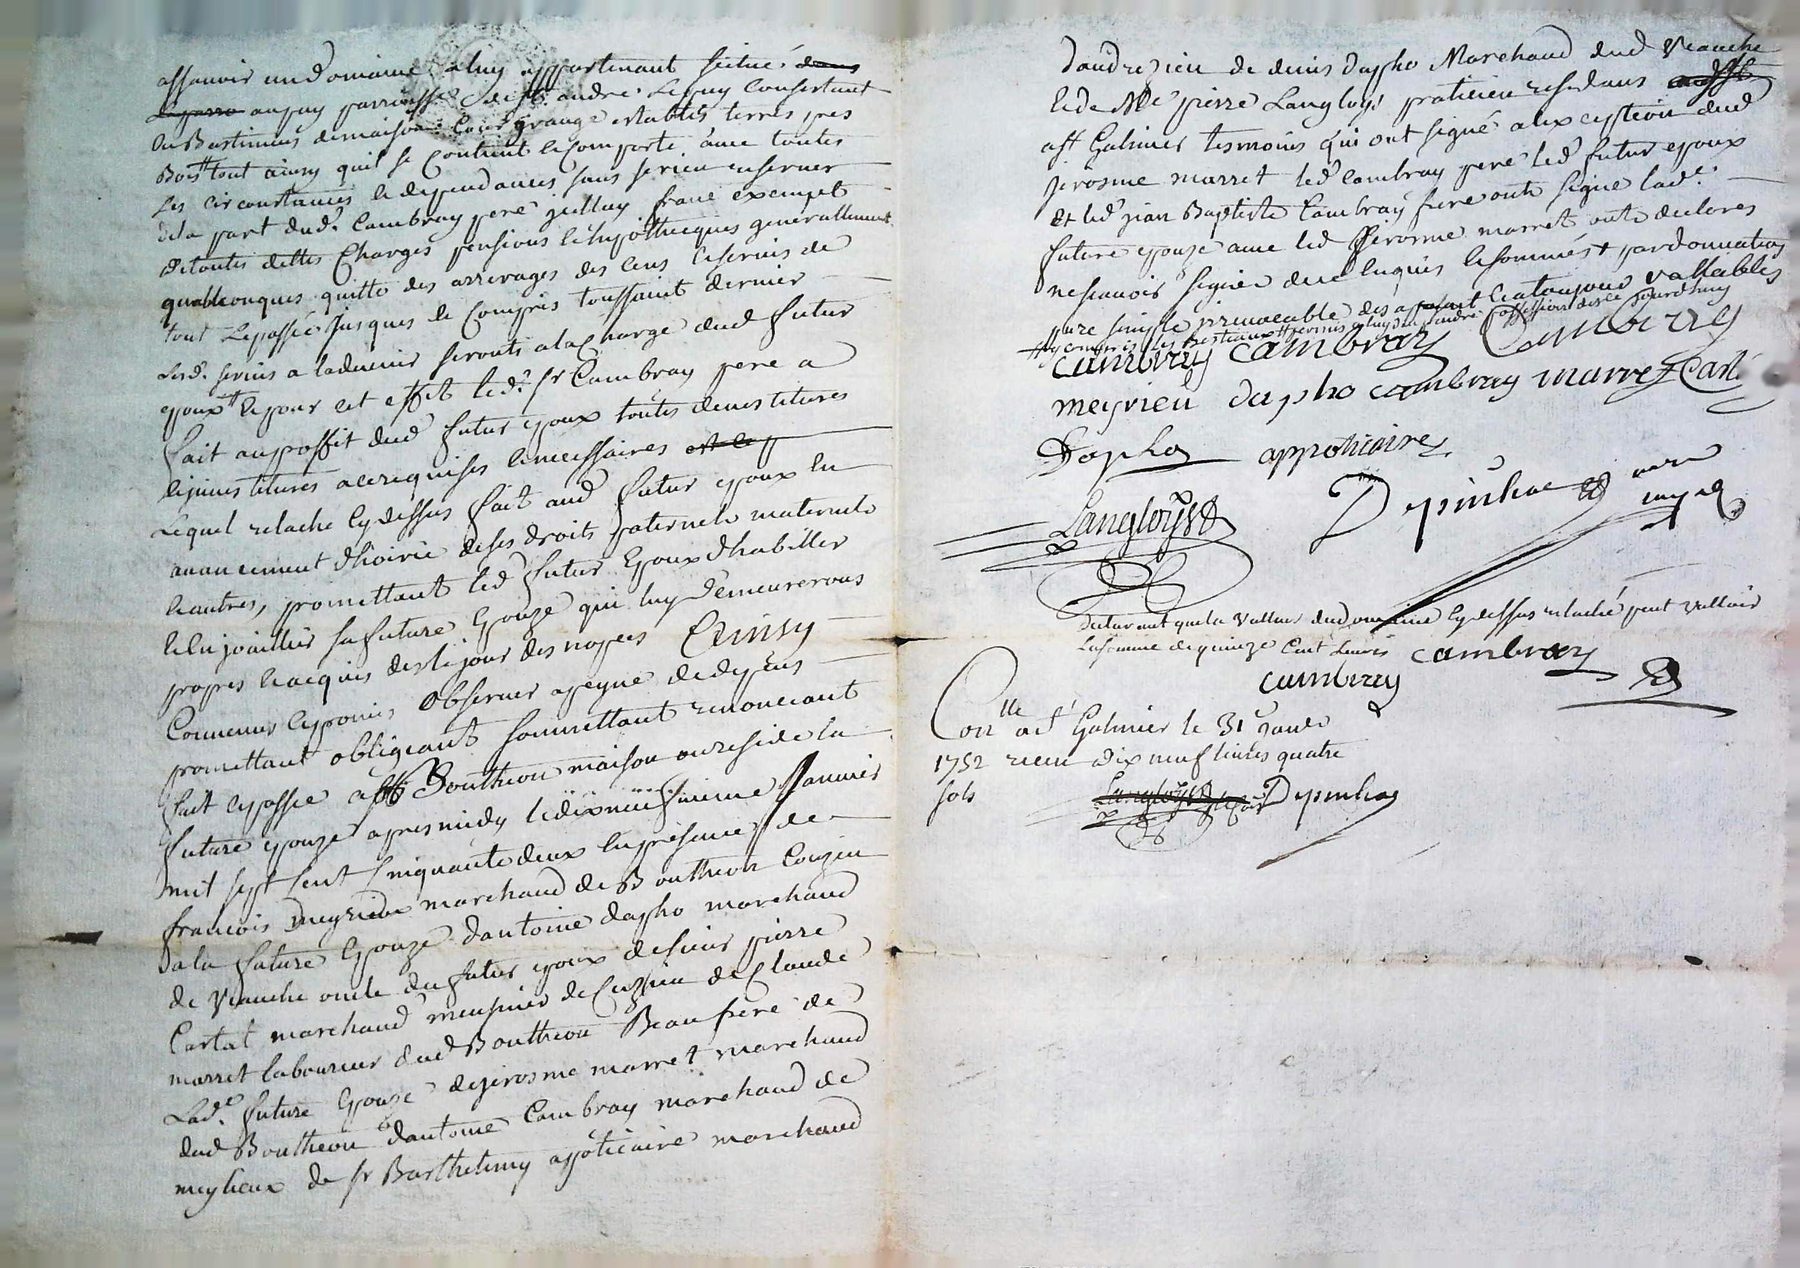 assavoir un domaine a luy appartenant scitué dans
au puy parroisse de st. andré le puy consistant
en Bastiments de maison cour grange estables terres pres
Bois tout ainsy quil se contient le comporte avec toutes
les circonstances & deppendances sans se rien reserver
de la part dud. Cambray pere jcelluy franc exempt
de toutes dettes charges pensions & hipotheques generallement
quelconques quitte des arrerages des cens & servis de
tout le passé jusques & compris toussaint dernier
lesd. servis a ladvenir seronts a la charge dud futur
epoux & pour cet effet led. sr Cambray pere a
fait au proffit dud futur epoux toutes devestitures
& jnvestitures a ce requises & necessaires
Lequel relache cy dessus fait aud futur epoux en
avancement d'hoirie de ses droits paternels maternels
& autres, promettant led futur Epoux d'habiller
& enjoailler sa future Epouze qui luy demeurerons
propres & acquis des le jour des nopces Ainsy
Convenus & promis observer a peyne de depens
promettant obligeant soumettant renonceant
fait & passé a Boutheon maison ou reside la
future epouze apres midy le dix neufvieme Janvier
mil sept cent cinquante deux en presence de
francois meyrieu marchand de Boutheon Couzin
a la future Epouze d'antoine dapho marchand
de Veauche oncle du futur epoux de sieur pierre
Cartal marchand meusnier de Cuzieu de Claude
marret laboureur dud Boutheon Beaufrere de
Lad.e future Epouze de jerosme marret marchand
dud Boutheon d'antoine Cambray marchand de
meylieux de sr Barthelemy appoticaire marchand
d'andrezieu de denis dapho Marchand dud Veauche
& de Me pierre Langlois praticien residans
a st Galmier tesmoins qui ont signé a lexception dud
jerosme marret led Cambray pere led futur epoux
et led jean Baptiste Cambray frere onts signé lad.e
future epouze avec led Jerosme marret onts declares
ne scavoir signer de ce enquis & sommés
pure simple jrrevocable des a present & a toujours vallables
y compris les Bestiaux
cambray cambray Cambray
meyrieu dapho cambray marret Cartal
Dapho appoticaire
Langloys Depinhac
declarant que la valleur dud domaine cy dessus relaché peut valloir
la somme de quinze cent livres cambray
cambray
Con.lle a st Galmier le 31 janv.
1752 receu dix neuf livres quatre
sols
Langloys Depinhac